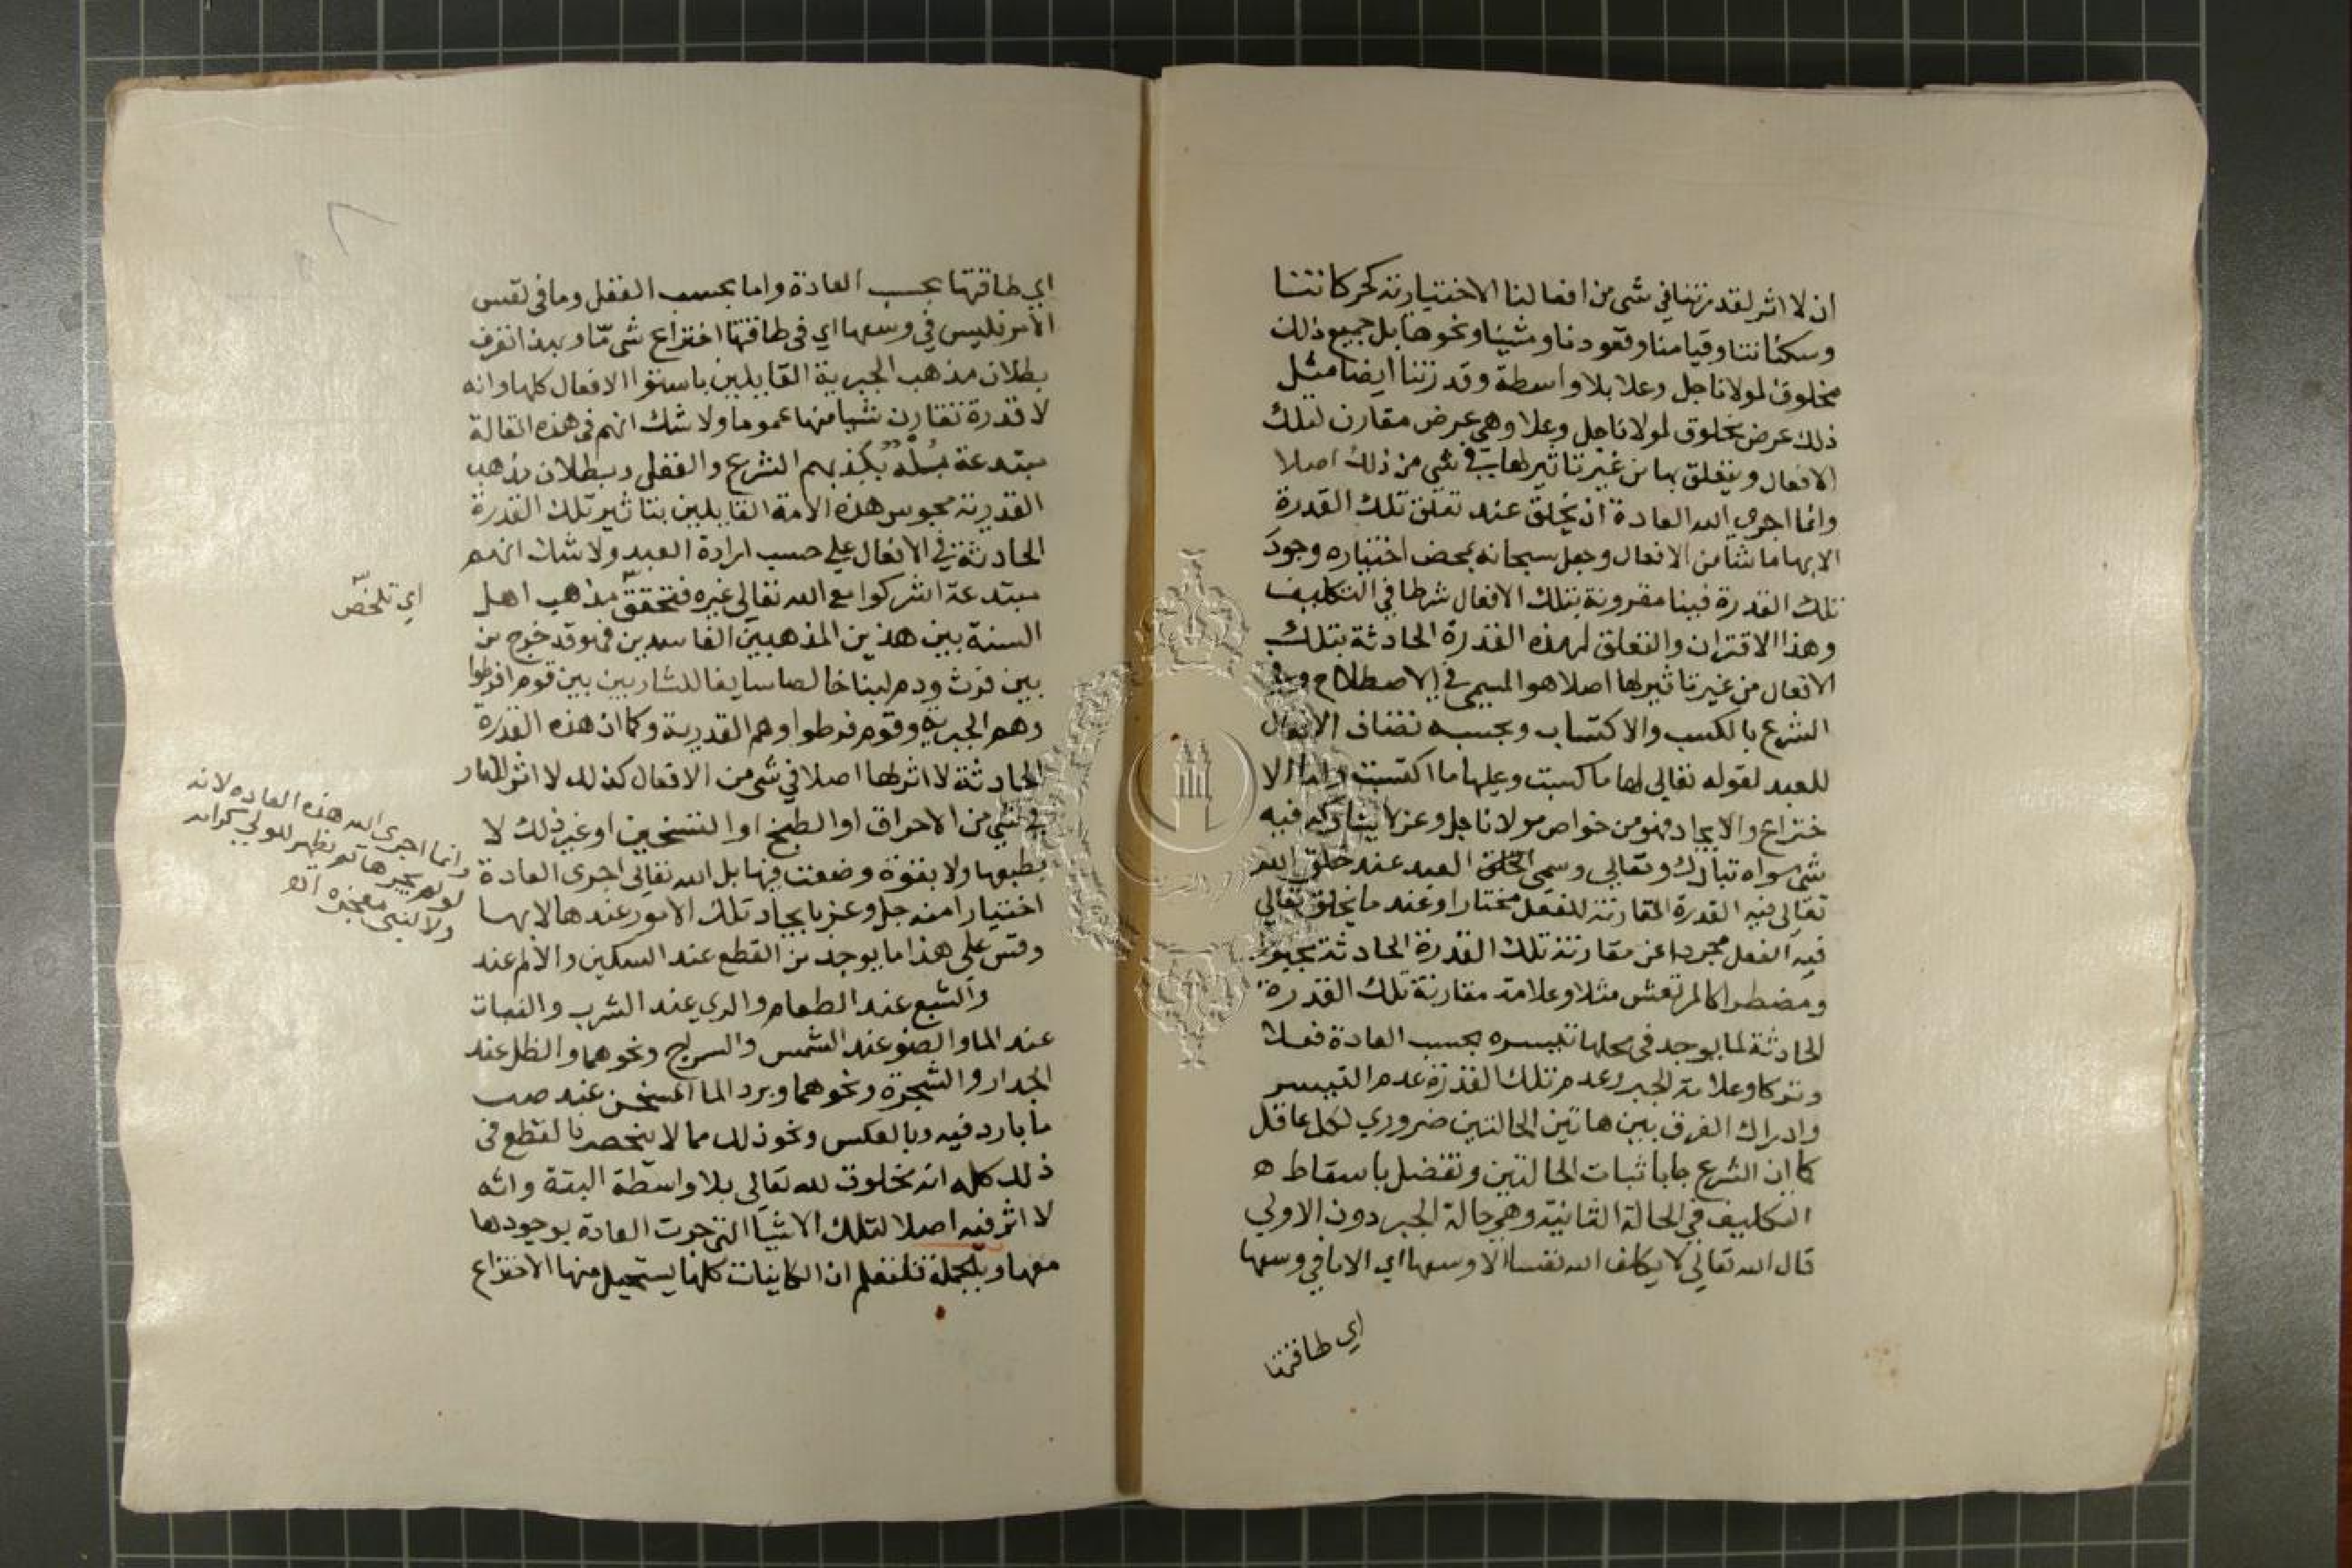 ان لا اثر لقدرتنا في شي من افعالنا الاختيارية كحركاتنا
وسكناتنا وقيامنا وقعودنا ومشينا ونحوها بل جميع ذلك
مخلوق لمولانا جل وعلا بلا واسطة وقدرتنا ايضا مثل
ذلك عرض مخلوق لمولانا جل وعلا وهي عرض مقارن لتلك
الافعال ويتعلق بها من غير تاثير لها في شي من ذلك اصلا
وانما اجري الله العادة ان يخلق عند تعلق تلك القدرة
لا بها ما شا من الافعال وجعل سبحانه بمحض اختياره وجود
تلك القدرة فينا مقرونة بتلك الافعال شرطا في التكليف
وهذا الاقتران والتعلق لهذه القدرة الحادثة بتلك
الافعال من غير تاثير لها اصلا هو المسمى في الاصطلاح وفي
الشرع بالكسب والاكتساب وبحسبه تضاف الافعال
للعبد لقوله تعالي لها ما كسبت وعليها ما اكتسبت واما الا
ختراع والايجاد فهو من خواص مولانا جل وعز لا يشاركه فيه
شي سواه تبارك وتعالي وسمى العبد عند خلق الله
تعالي فيه القدرة المقارنة للفعل مختارا وعند ما يخلق تعالي
فيه الفعل مجردا عن مقارنة تلك القدرة الحادثة مجبورا
ومضطرا كالمرتعش مثلا وعلامة مقارنة تلك القدرة
الحادثة لما يوجد في محلها تيسره بحسب العادة فعلا
وتركا وعلامة الجبر وعدم تلك القدرة عدم التيسر
وادراك الفرق بين هاتين الحالتين ضروري لكل عاقل
كما ان الشرع جا باثبات الحالتين وتفضل باسقاط ه
التكليف في الحالة الثانية وهي حالة الجبر دون الاولي
قال الله تعالي لا يكلف الله نفسا الا وسعها اي الا ما في وسعها
اي طاقتها
اي طاقتها بحسب العادة واما بحسب العقل وما في نفس
الامر فليس في وسعها اي في طاقتها اختراع شي مّا وبهذا تعرف
بطلان مذهب الجبرية القايلين باستوا الافعال كلها وانه
لا قدرة تقارن شيا منها عموما ولا شك انهم في هذه المقالة
مبتدعة بُلْهٌ يكذبهم الشرع والعقل وبطلان مذهب
القدرية مجوس هذه الامة القايلين بتاثير تلك القدرة
الحادثة في الافعال علي حسب ارادة العبد ولا شك انهم
مبتدعة اشركوا مع الله تعالي غيره فتحقق مذهب اهل
السنة بين هذين المذهبين الفاسدين فهو قد خرج من
بين فرث ودم لبنا خالصا سايغا للشاربين بين قوم افرطوا
وهم الجبرية وقوم فرطوا وهم القدرية وكما ان هذه القدرة
الحادثة لا اثر لها اصلا في شي من الافعال كذلك لا اثر للنار
في شي من الاحراق او الطبخ او التسخين او غير ذلك لا
بطبعها ولا بقوة وضعت فيها بل الله تعالى اجرى العادة
اختيارا منه جل وعز بايجاد تلك الامور عندها لا بها
وقس علي هذا ما يوجد من القطع عند السكين والالم عند
والشبع عند الطعام والري عند الشرب والنبات
عند الما والضو عند الشمس والسراج ونحوهما والظل عند
الجدار والشجرة ونحوهما وبرد الما المسخن عند صب
ما بارد فيه وبالعكس ونحو ذلك مما لا ينحصر بالقطع في
ذلك كله انه مخلوق لله تعالي بلا واسطة البتة وانه
لا اثر فيه اصلا لتلك الاشيا التي جرت العادة بوجودها
معها وبالجملة فلتعلم ان الكاينات كلها يستحيل منها الاختراع
اي تلخّص
وانما اجرى الله هذه العاده لانه
لو لم يجرها لم يظهر للولي كرامه
ولا لنبي معجزه